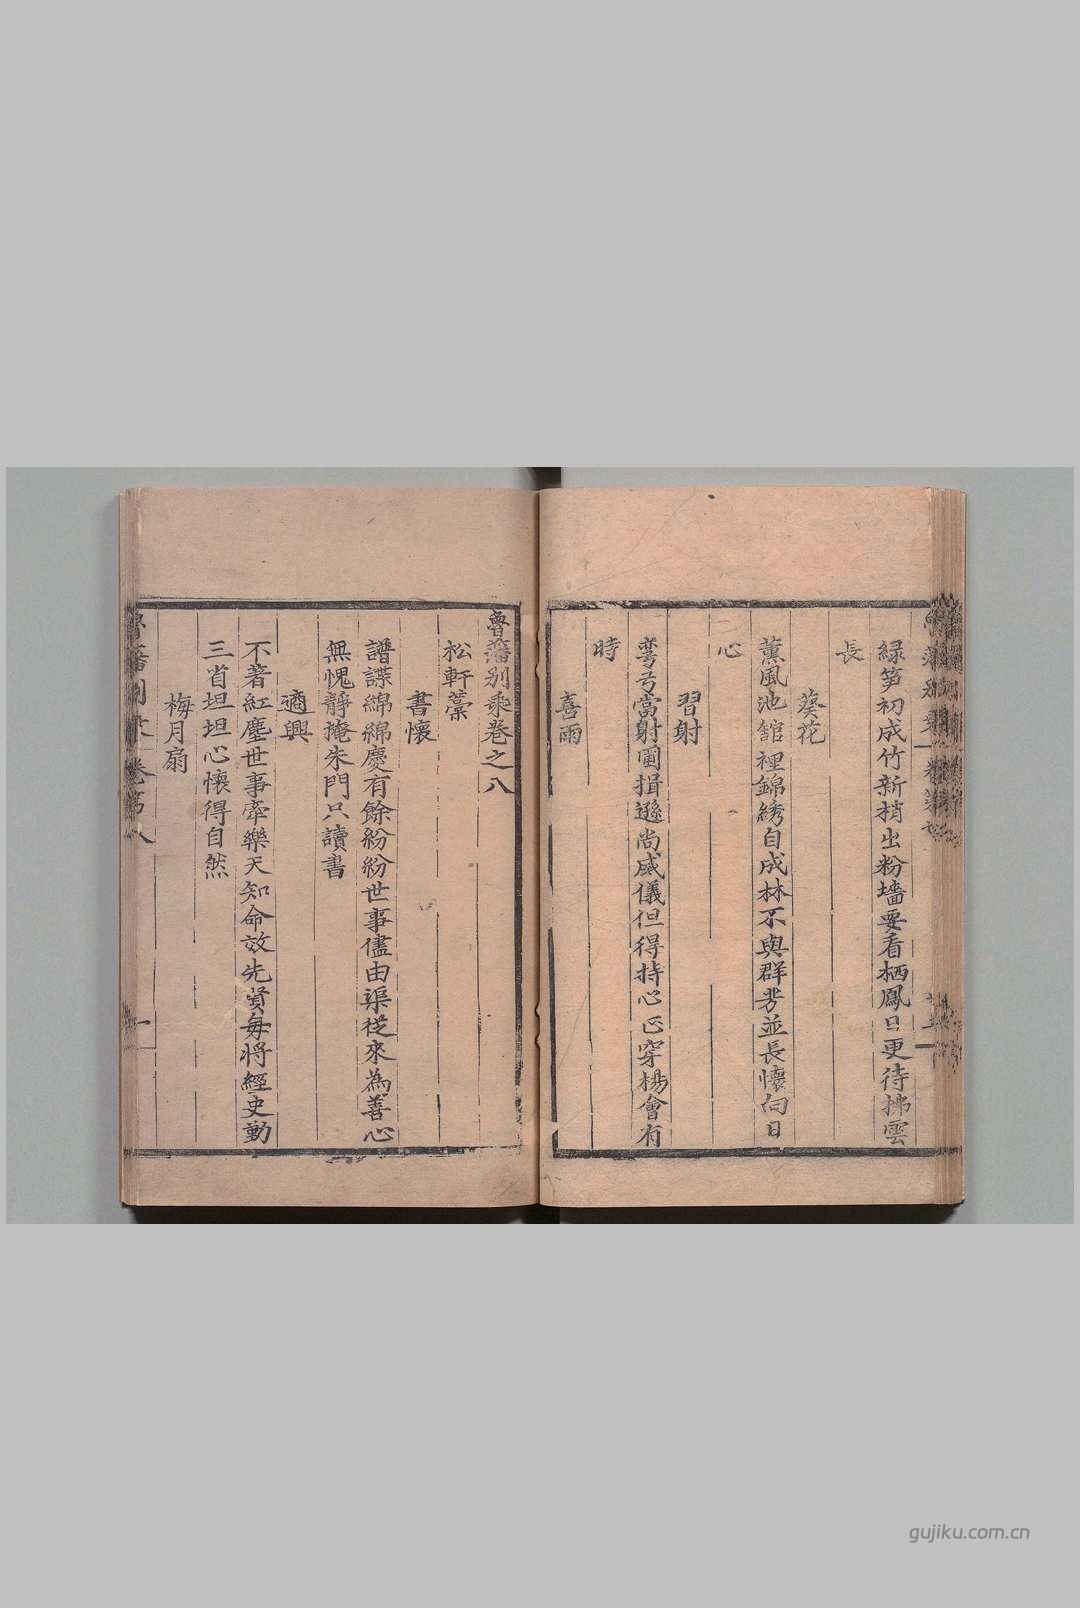 綠笋初成竹新梢出粉墻要看栖鳳日更待拂雲
長
葵花
薰風池舘裡錦綉自成林不與群芳並長懷向日
心
習射
彎弓當射圃揖遜尚威儀但得持心正穿楊會有
時
喜雨
魯藩別乘卷之八
松軒藁
書懷
譜諜綿綿慶有餘紛紛世事儘由渠從來為善心
無愧靜掩朱門只讀書
適興
不著紅塵世事牽樂天知命效先賢每將經史勤
三省坦坦心懷得自然
梅月扇
卷第八
一
gujiku.com.cn